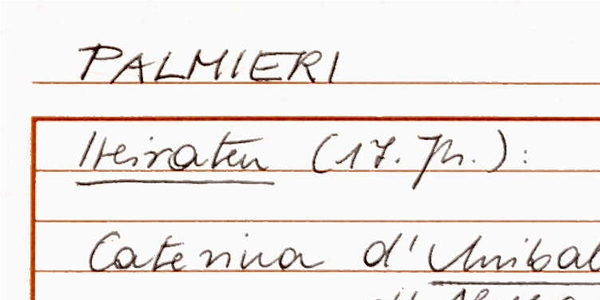 PALMIERI
Heiraten (17. Jh.):
Caterina d'Annibal